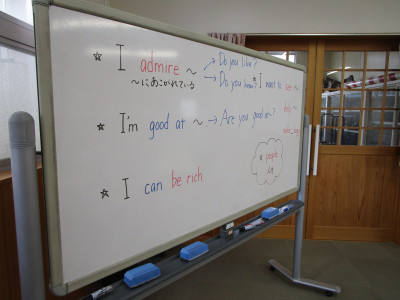 ☆ I admire ～ → Do you like?
→ Do you know? ☆ I want to see ～
～にあこがれている
help ～
☆ I'm good at ～ → Are you good at ～?
people
☆ I can be rich.